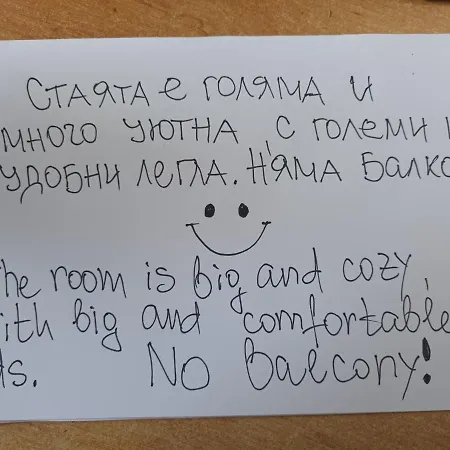 Стаята е голяма и
много уютна, с големи и
удобни легла. Няма балко
he room is big and cozy,
ith big and comfortable
ds. No balcony!